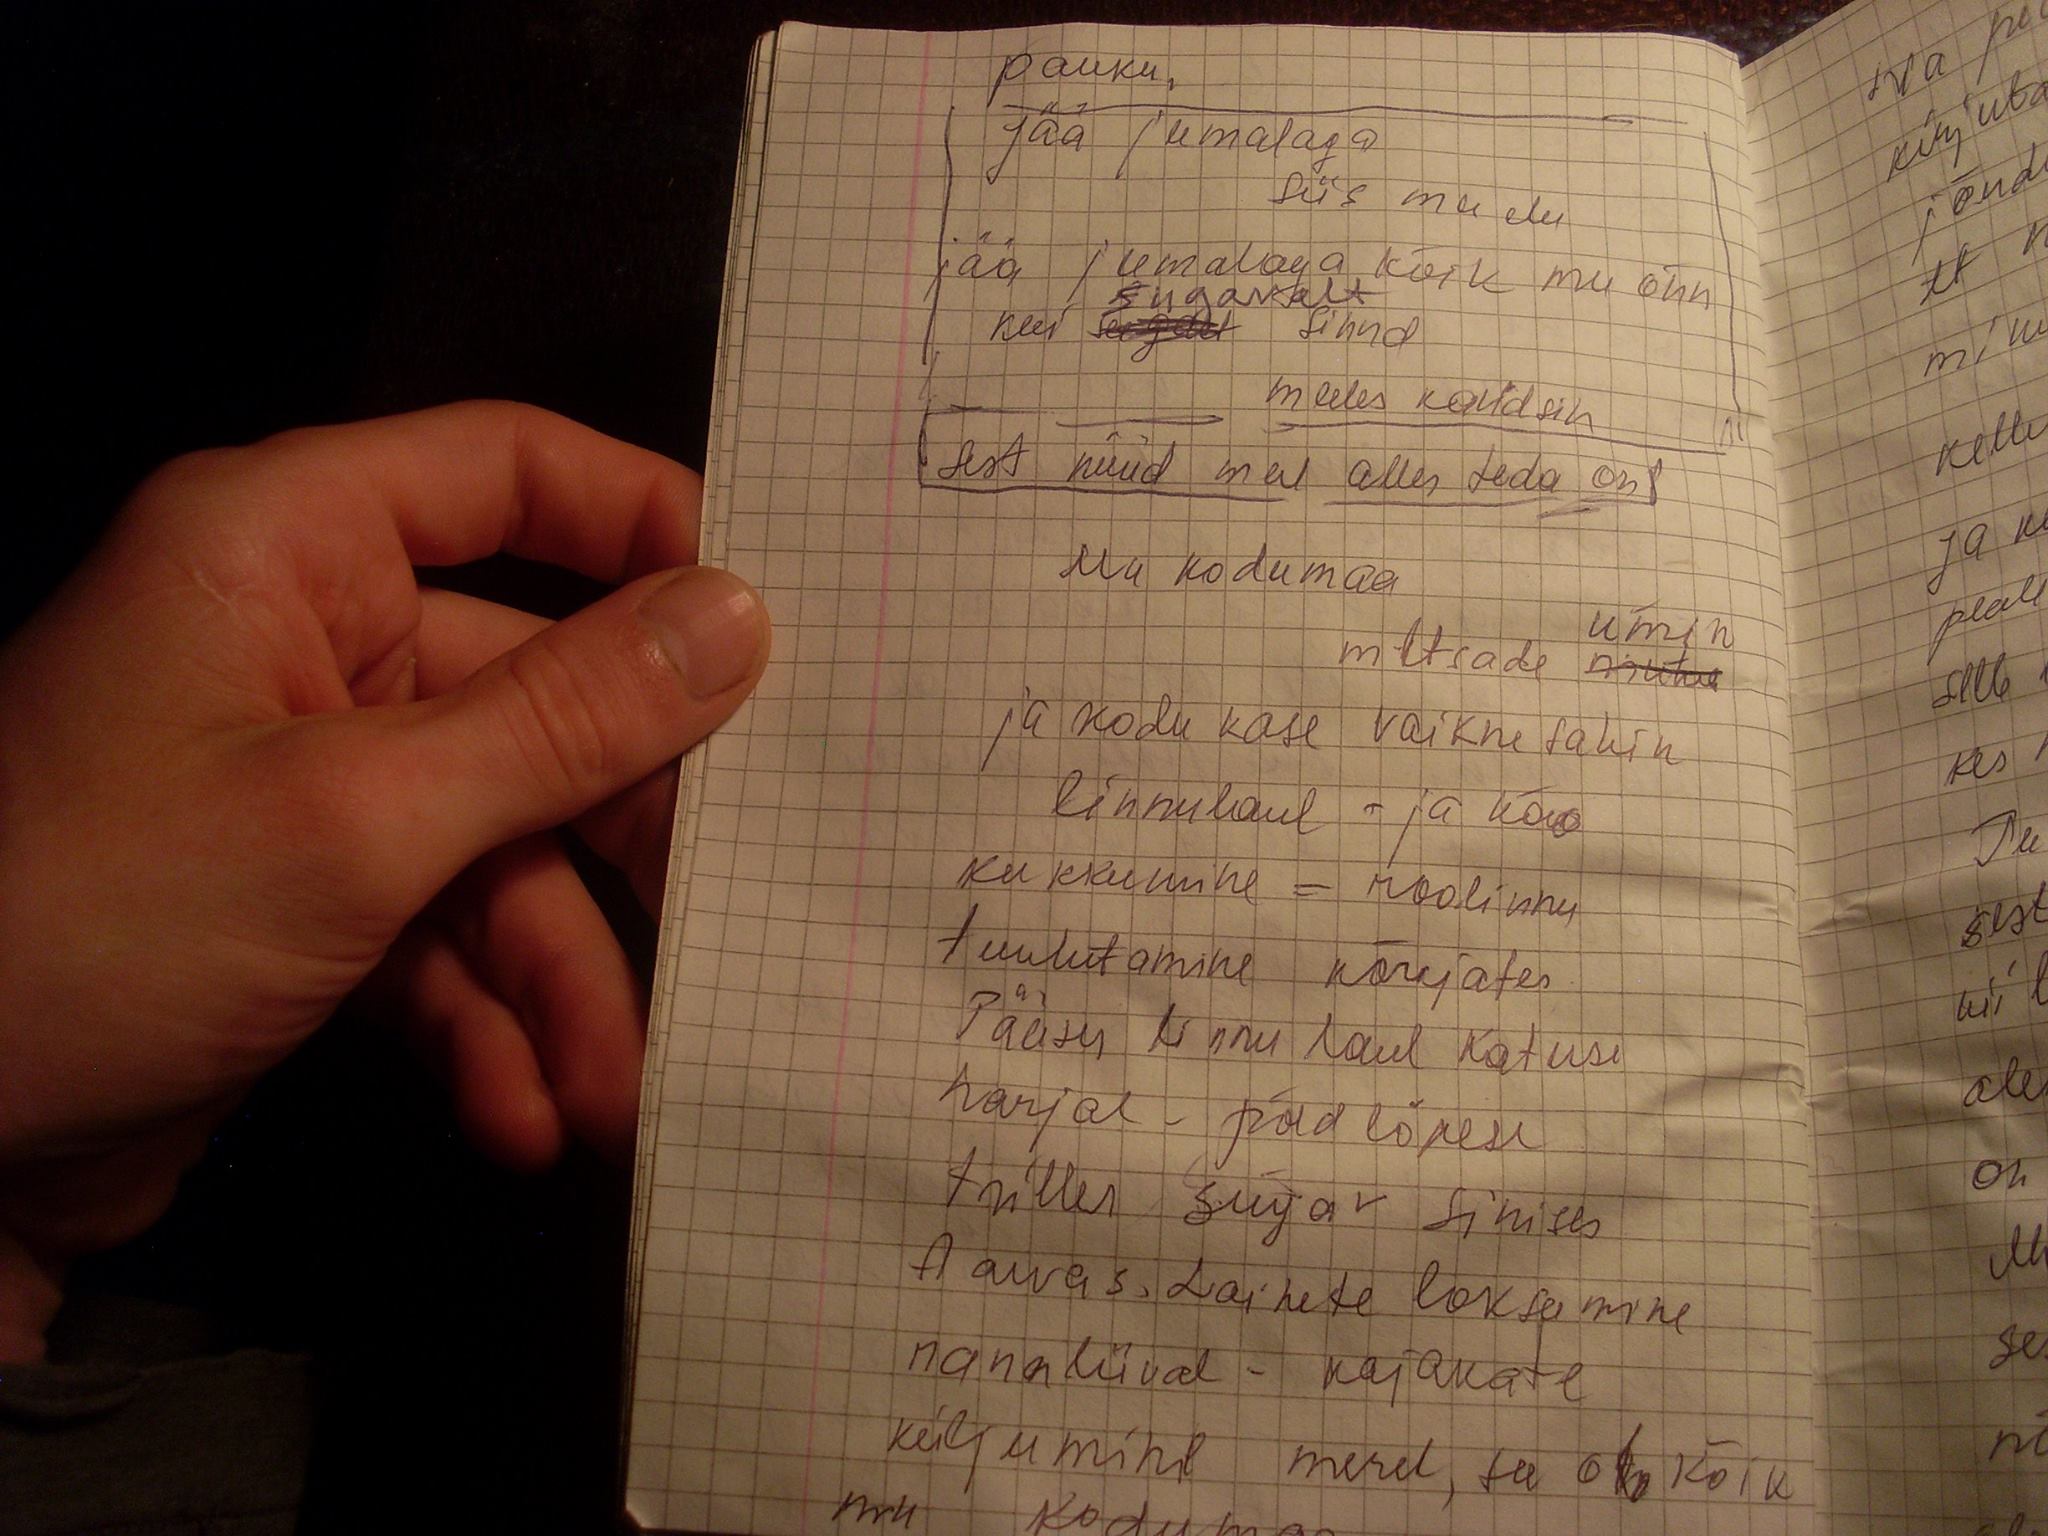 pauku,
jää jumalaga
siis mu elu
jää jumalaga kõik mu õnn
sügavalt
kui sinnd
meeles kandsin
sest nüüd meil alles seda on!
Mu kodumaa
ümin
metsade
ja kodu kase vaikne sahin
linnulaul - ja käo
kukkumine = roolinnu
tuulutamine kõrgjates
Pääsu linnu laul katuse
harjal - põld lõpese
triller sügav sinises
taevas. Lainete loksumine
rannaliival - kajakate
kiljumine merel, see on kõik
mu kodumaa
sya
kirjuta
jõud
et
ja
peale
selle
kes
sest
nii
on